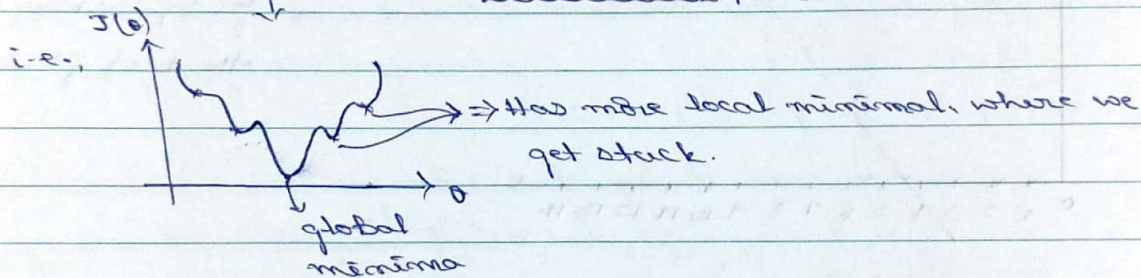 J(θ)
i.e.,
=> Has more local minimal, where we
get stuck.
θ
global
minima